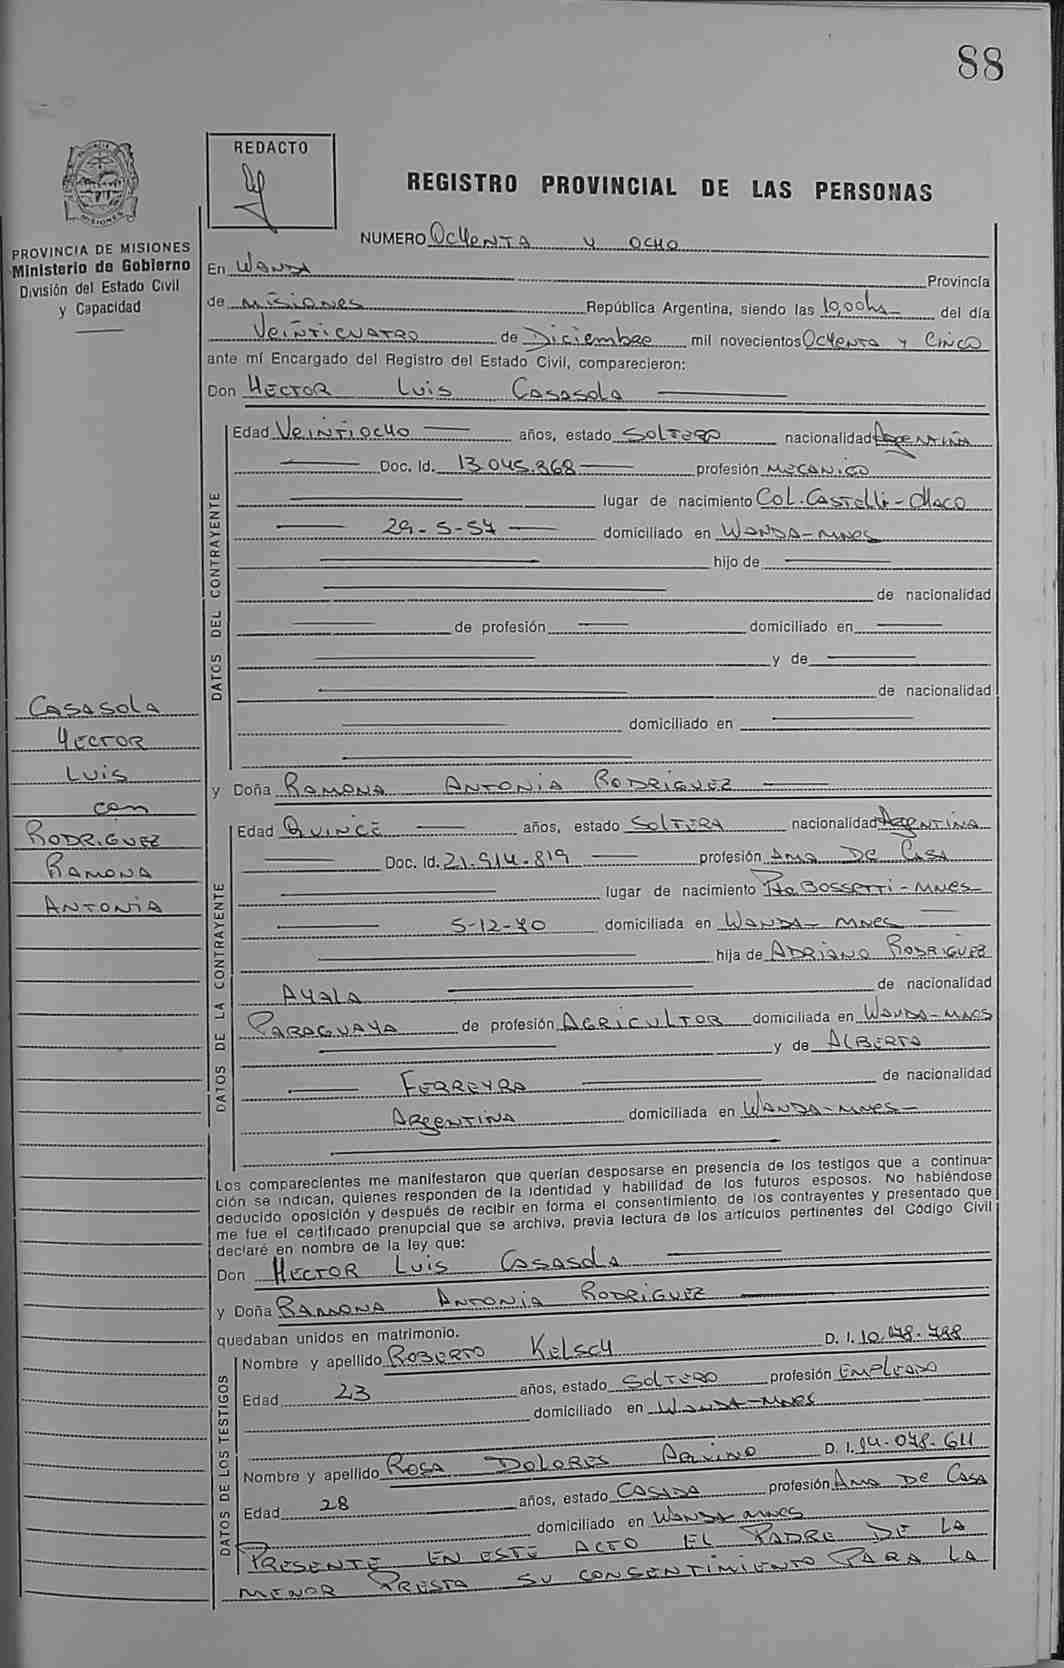 88
REDACTO
REGISTRO PROVINCIAL DE LAS PERSONAS
PROVINCIA DE MISIONES
Ministerio de Gobierno
División del Estado Civil
y Capacidad
NUMERO OCHENTA Y OCHO
En WANDA Provincia
de MISIONES República Argentina, siendo las 10,00hs del día
VEINTICUATRO de Diciembre mil novecientos OCHENTA Y CINCO
ante mí Encargado del Registro del Estado Civil, comparecieron:
Don HECTOR LUIS CASASOLA
DATOS DEL CONTRAYENTE
Edad VEINTIOCHO años, estado SOLTERO nacionalidad ARGENTINA
Doc. Id. 13.045.368 profesión MECANICO
lugar de nacimiento COL. CASTELLI - CHACO
29-5-57 domiciliado en WANDA-MNES
hijo de
de nacionalidad
de profesión domiciliado en
y de
de nacionalidad
domiciliado en
CASASOLA
HECTOR
LUIS
con
RODRIGUEZ
RAMONA
ANTONIA
y Doña RAMONA ANTONIA RODRIGUEZ
DATOS DE LA CONTRAYENTE
Edad QUINCE años, estado SOLTERA nacionalidad ARGENTINA
Doc. Id. 21.914.819 profesión AMA DE CASA
lugar de nacimiento Pto BOSSETTI - MNES
5-12-70 domiciliada en WANDA - MNES
hija de ADRIANO RODRIGUEZ
AYALA de nacionalidad
PARAGUAYA de profesión AGRICULTOR domiciliada en WANDA-MNES
y de ALBERTA
FERREYRA de nacionalidad
ARGENTINA domiciliada en WANDA-MNES
Los comparecientes me manifestaron que querían desposarse en presencia de los testigos que a continua-
ción se indican, quienes responden de la identidad y habilidad de los futuros esposos. No habiéndose
deducido oposición y después de recibir en forma el consentimiento de los contrayentes y presentado que
me fue el certificado prenupcial que se archiva, previa lectura de los artículos pertinentes del Código Civil
declaré en nombre de la ley que:
Don HECTOR LUIS CASASOLA
y Doña RAMONA ANTONIA RODRIGUEZ
quedaban unidos en matrimonio.
DATOS DE LOS TESTIGOS
Nombre y apellido ROBERTO KELSCH D. I. 10.078.788
Edad 23 años, estado SOLTERO profesión EMPLEADO
domiciliado en WANDA-MNES
Nombre y apellido ROSA DOLORES AQUINO D. I. 14.078.611
Edad 28 años, estado CASADA profesión AMA DE CASA
domiciliado en WANDA MNES
PRESENTE EN ESTE ACTO EL PADRE DE LA
MENOR PRESTA SU CONSENTIMIENTO PARA LA